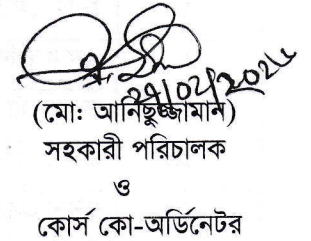 ২৭/০২/২০২৫
(মো: আনিছুজ্জামান)
সহকারী পরিচালক
ও
কোর্স কো-অর্ডিনেটর